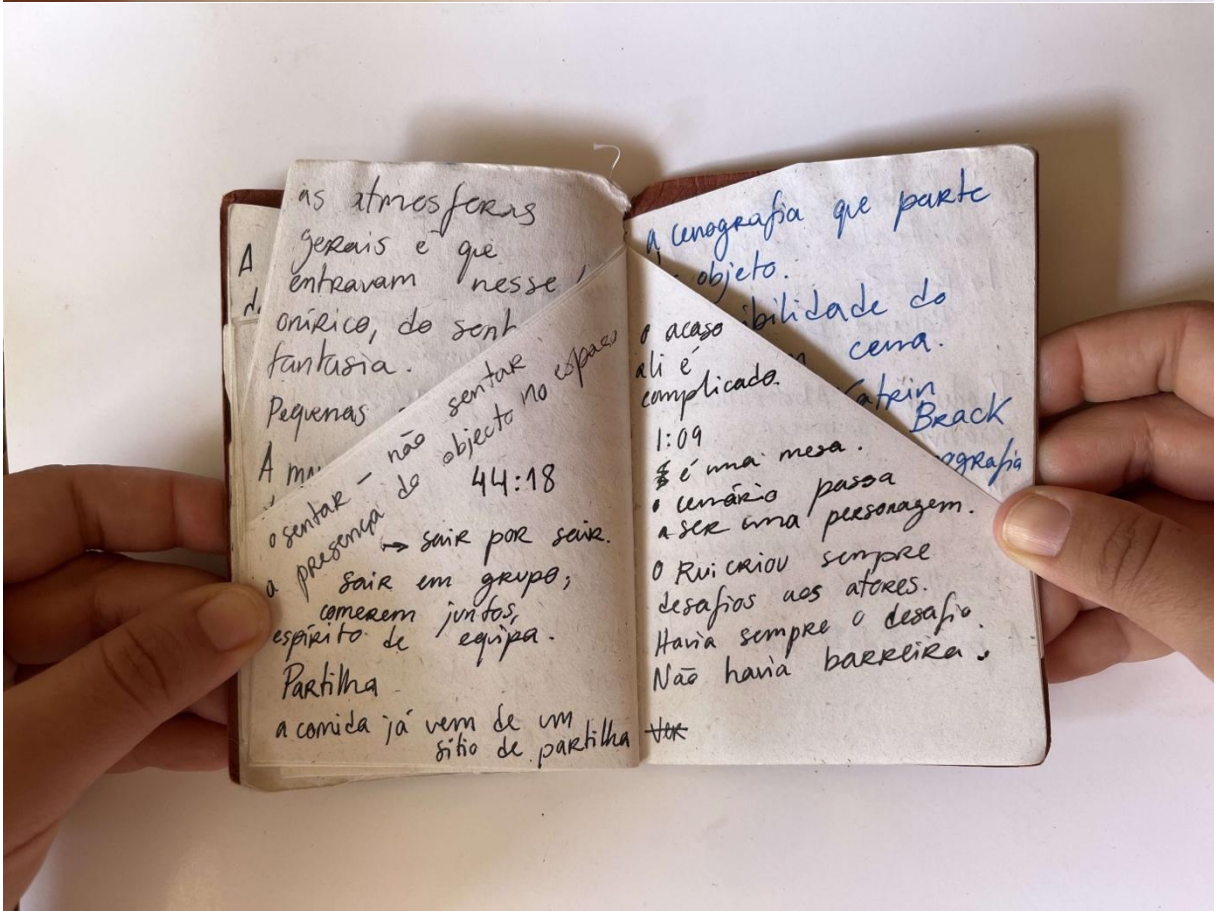 as atmosferas
gerais é que
entravam nesse
onírico, do
fantasia.
Pequenas
A
A
o sentar – não sentar
a presença do objecto no espaço
44:18
→ sair por sair.
sair em grupo,
comerem juntos,
espírito de equipa.
Partilha
a comida já vem de um
sítio de partilha
a cenografia que parte
objeto.
do
cena.
Brack
o acaso
ali é
complicado.
1:09
é uma mesa.
o cenário passa
a ser uma personagem.
O Rui criou sempre
desafios aos atores.
Havia sempre o desafio.
Não havia barreira.